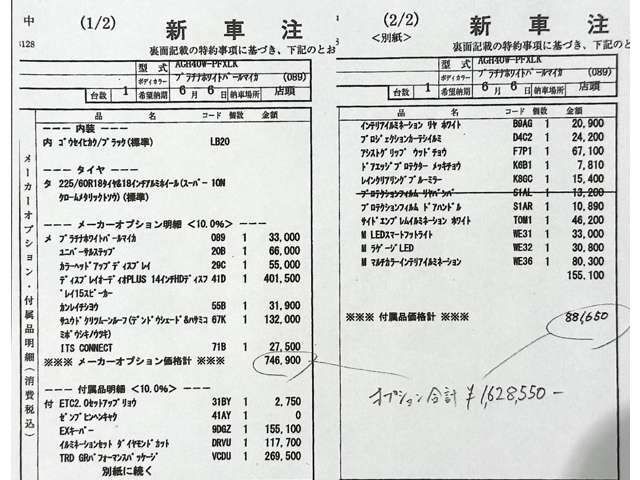 中
(1/2)
新 車 注
裏面記載の特約事項に基づき、下記のとお
型 式 AGH40W-PFXLK
ボディカラー プラチナホワイトパールマイカ (089)
台数 1 希望納期 6 月 6 日 納車場所 店頭
メーカーオプション・付属品明細(消費税込)
品 名 コード 個数 金額
--- 内装 ---
内 ゴウセイヒカク/ブラック(標準) LB20
--- タイヤ ---
タ 225/60R18タイヤ&18インチアルミホイール(スーパー 10N
クロームメタリックトソウ)(標準)
--- メーカーオプション明細 <10.0%> ---
メ プラチナホワイトパールマイカ 089 1 33,000
ユニバーサルステップ 20B 1 66,000
カラーヘッドアップディスプレイ 29C 1 55,000
ディスプレイオーディオPLUS 14インチHDディスプ 41D 1 401,500
レイ15スピーカー
カンレイチシヨウ 55B 1 31,900
サユウドクリツムーンルーフ(デンドウシェード&ハサミコ 67K 1 132,000
ミボウシキノウツキ)
ITS CONNECT 71B 1 27,500
※※※ メーカーオプション価格計 ※※※ 746,900
--- 付属品明細 <10.0%> ---
付 ETC2.0セットアップリョウ 31BY 1 2,750
ゼンプヒンヘンキャク 41AY 1 0
EXキーパー 9DGZ 1 155,100
イルミネーションセット ダイヤモンドカット DRVU 1 117,700
TRD GRパフォーマンスパッケージ VCDU 1 269,500
別紙に続く
(2/2)
<別紙>
新 車 注
裏面記載の特約事項に基づき、下記のとお
型 式 AGH40W-PFXLK
ボディカラー プラチナホワイトパールマイカ (089)
台数 1 希望納期 6 月 6 日 納車場所 店頭
品 名 コード 個数 金額
インテリアイルミネーション リヤ ホワイト B9AG 1 20,900
プロジェクションカーテシイルミ D4C2 1 24,200
アシストグリップ ウッドチョウ F7P1 1 67,100
ドアエッジプロテクター メッキチョウ K6B1 1 7,810
レインクリアリングブルーミラー K8GC 1 15,400
プロテクションフィルム リヤバンパー S1AL 1 13,200
プロテクションフィルム ドアハンドル S1AR 1 10,890
サイドエンブレムイルミネーション ホワイト T0M1 1 46,200
M LEDスマートフットライト WE31 1 33,000
M ラゲージLED WE32 1 30,800
M マルチカラーインテリアイルミネーション WE36 1 80,300
155,100
※※※ 付属品価格計 ※※※ 881,650
オプション合計 ¥1,628,550-